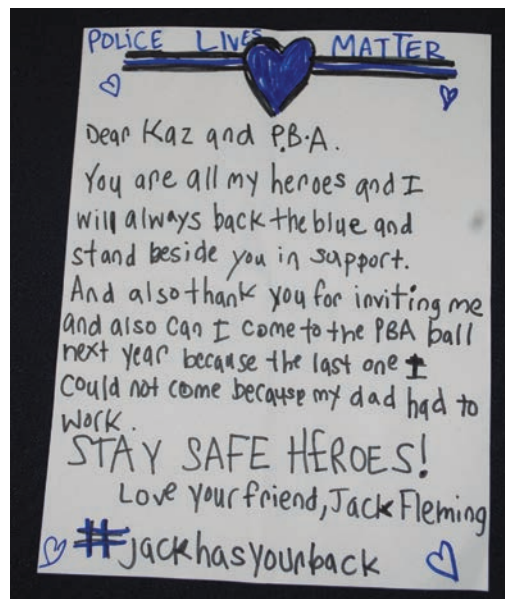 POLICE LIVES MATTER
Dear Kaz and P.B.A.
You are all my heroes and I
will always back the blue and
stand beside you in support.
And also thank you for inviting me
and also can I come to the PBA ball
next year because the last one I
could not come because my dad had to
work.
STAY SAFE HEROES!
Love your friend, Jack Fleming
#jackhasyourback